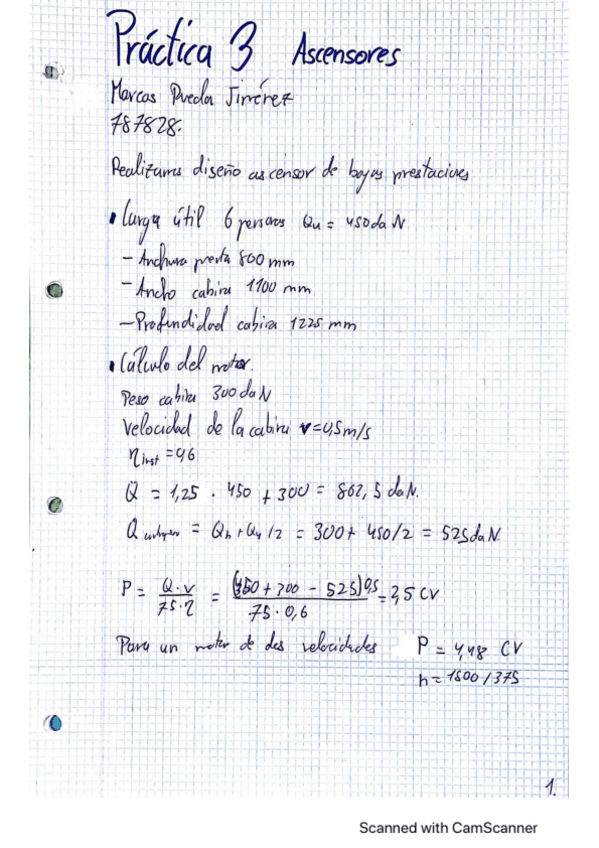 Práctica 3 Ascensores
Marcos Rueda Jiménez
787828.
Realizamos diseño ascensor de bajas prestaciones
• Carga útil 6 personas Qu = 450 daN
- Anchura puerta 800 mm
- Ancho cabina 1100 mm
- Profundidad cabina 1225 mm
• Cálculo del motor.
Peso cabina 300 daN
Velocidad de la cabina v=0,5m/s
η inst = 0,6
Q = 1,25 · 450 + 300 = 862,5 daN.
Q contrapeso = Qh + Qu/2 = 300 + 450/2 = 525 daN
P = Q·v / 75·η = (450+300 - 525)0,5 / 75·0,6 = 2,5 CV
Para un motor de dos velocidades P = 4,48 CV
n = 1500/375
1.
Scanned with CamScanner